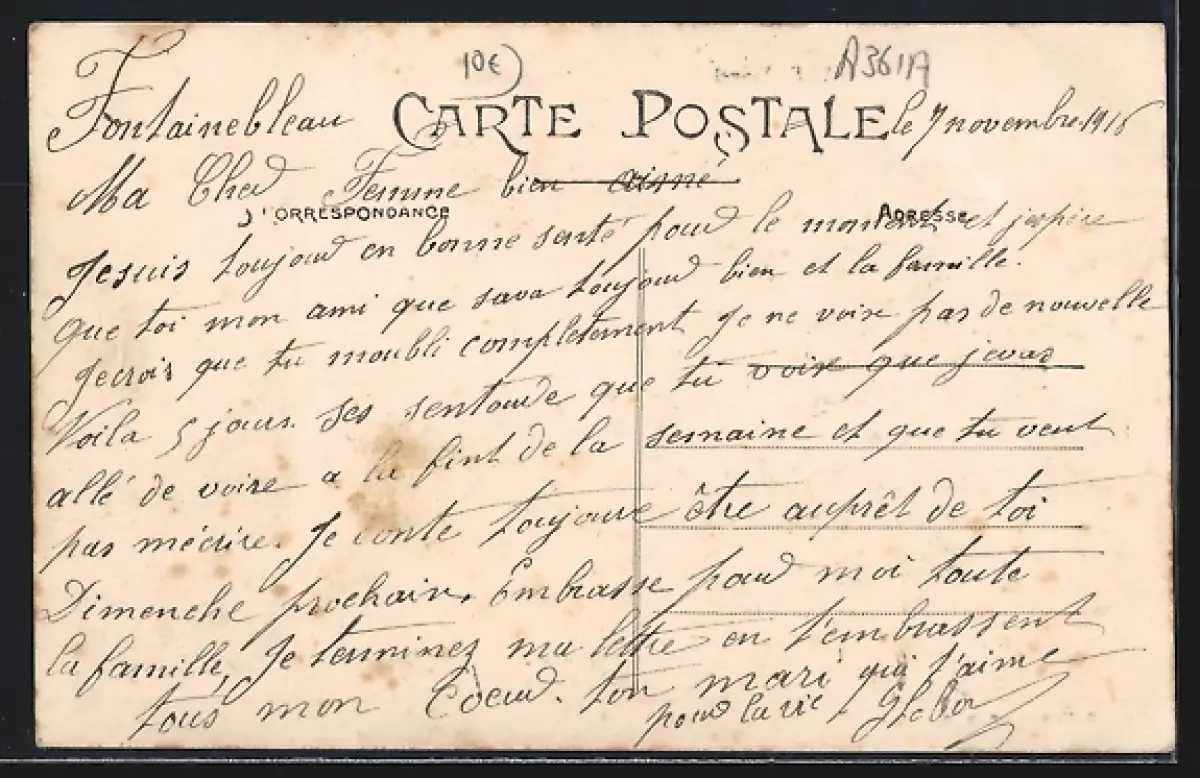 10€
A361A
Fontainebleau CARTE POSTALE le 7 novembre 1916
Ma Cher Femme bien aisné
CORRESPONDANCE ADRESSE
Je suis toujour en bonne santé pour le moment et jespère
que toi mon ami que sava toujour bien et la famille.
Jecrois que tu moubli completement Je ne voix pas de nouvelle
Voila 5 jours ses sentoude que tu voix que jevas
allé de voire a la fint de la semaine et que tu veut
pas mécrire. Je conte toujoure être auprêt de toi
Dimenche prochain. Embrasse pour moi toute
la famille, Je terminez ma lettre en t'embrassent
tous mon Coeur. ton mari qui t'aime
pour la vie